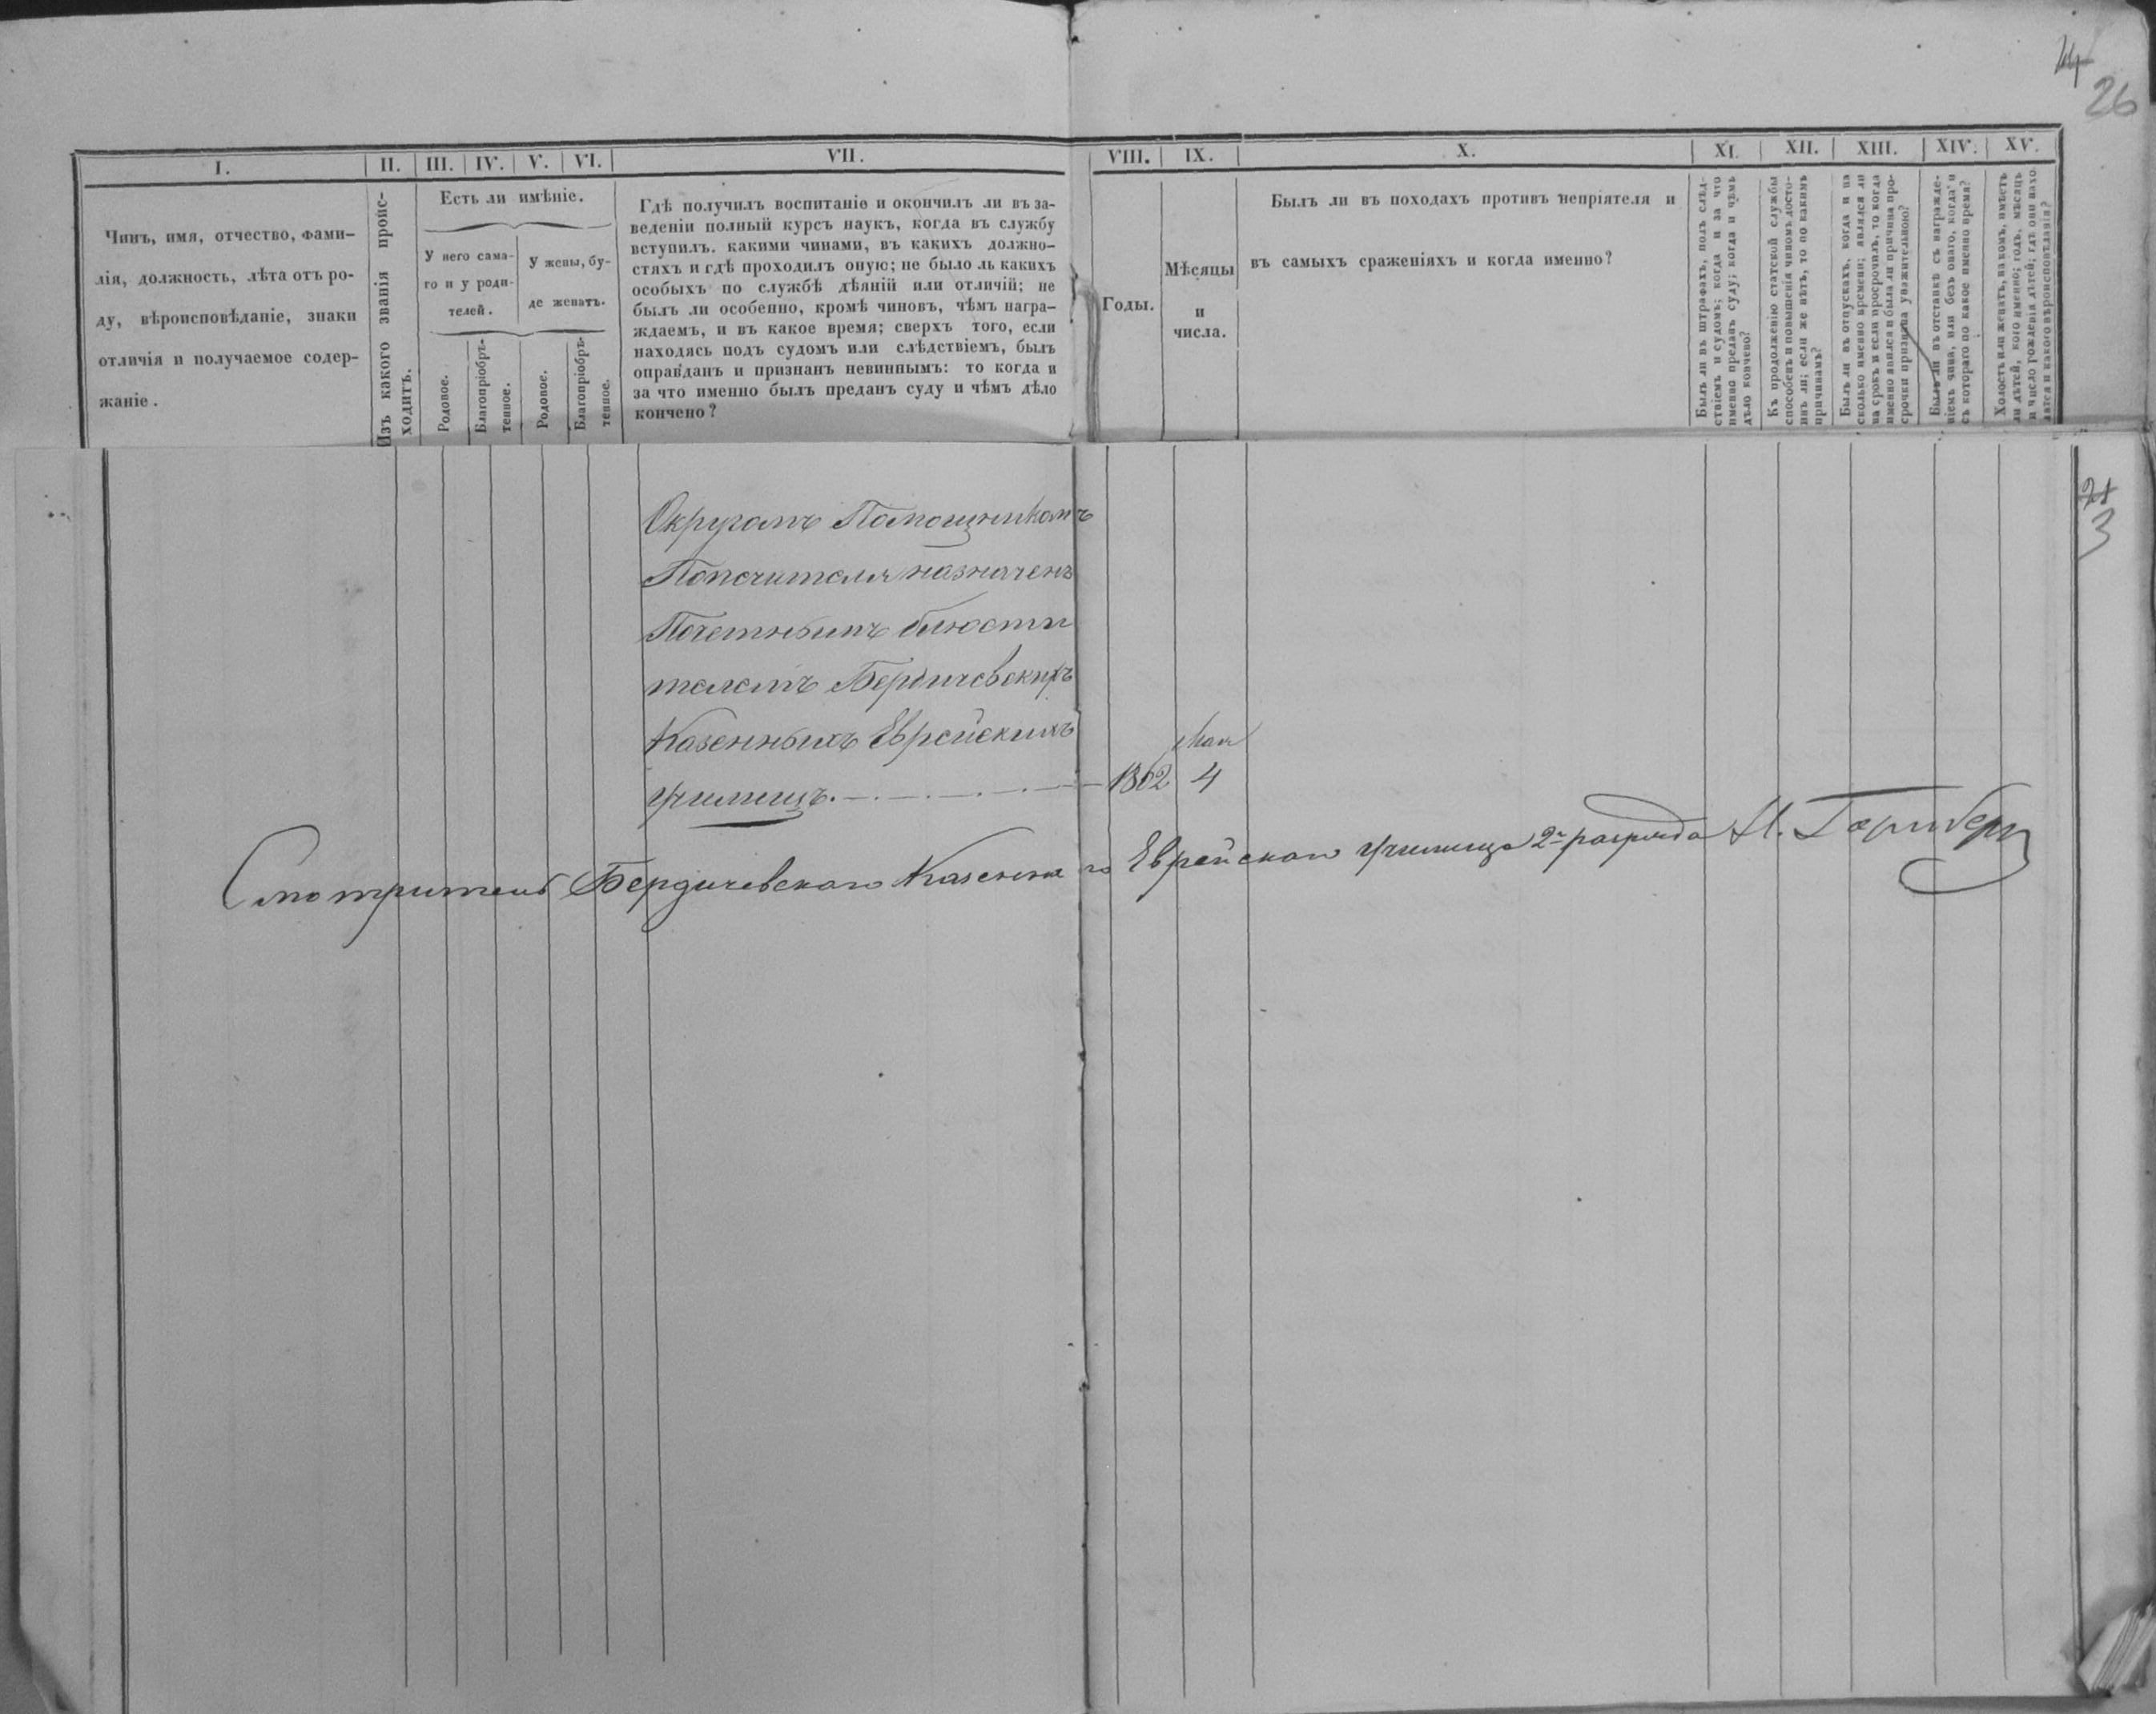 26
I.
II.
III.
IV.
V.
VI.
VII.
VIII.
IX.
X.
XI.
XII.
XIII.
XIV.
XV.
Чинъ, имя, отчество, фами-
лія, должность, лѣта отъ ро-
ду, вѣроисповѣданіе, знаки
отличія и получаемое содер-
жаніе.
Изъ какого званія проис-
ходитъ.
Есть ли имѣніе.
У него сама-
го и у роди-
телей.
У жены, бу-
де женатъ.
Родовое.
Благопріобрѣ-
тенное.
Родовое.
Благопріобрѣ-
тенное.
Гдѣ получилъ воспитаніе и окончилъ ли въ за-
веденіи полный курсъ наукъ, когда въ службу
вступилъ. какими чинами, въ какихъ должно-
стяхъ и гдѣ проходилъ оную; не было ль какихъ
особыхъ по службѣ дѣяній или отличій; не
былъ ли особенно, кромѣ чиновъ, чѣмъ награ-
ждаемъ, и въ какое время; сверхъ того, если
находясь подъ судомъ или слѣдствіемъ, былъ
оправданъ и признанъ невиннымъ: то когда и
за что именно былъ преданъ суду и чѣмъ дѣло
кончено?
Годы.
Мѣсяцы
и
числа.
Былъ ли въ походахъ противъ непріятеля и
въ самыхъ сраженіяхъ и когда именно?
Былъ ли въ штрафахъ, подъ слѣд-
ствіемъ и судомъ; когда и за что
именно преданъ суду; когда и чѣмъ
дѣло кончено?
Къ продолженію статской службы
способенъ и повышенія чиномъ досто-
инъ ли; если же нѣтъ, то по какимъ
причинамъ?
Былъ ли въ отпускахъ, когда и на
сколько именно времени; являлся ли
на срокъ и если просрочилъ, то когда
именно явился и была ли причина про-
срочки признана уважительною?
Былъ ли въ отставкѣ съ награжде-
ніемъ чина, или безъ онаго, когда и
съ котораго по какое именно время?
Холостъ или женатъ, на комъ, имѣетъ
ли дѣтей, кого именно; годъ, мѣсяцъ
и число рожденія дѣтей; гдѣ они нахо-
дятся и какого вѣроисповѣданія?
3
Округомъ Помощникомъ
Попечителя назначенъ
Почетнымъ блюсти
телемъ Бердичевскихъ
Казенныхъ Еврейскихъ
училищъ. 1862 Мая 4
Смотритель Бердичевскаго Казеннаго Еврейскаго училища 2го разряда